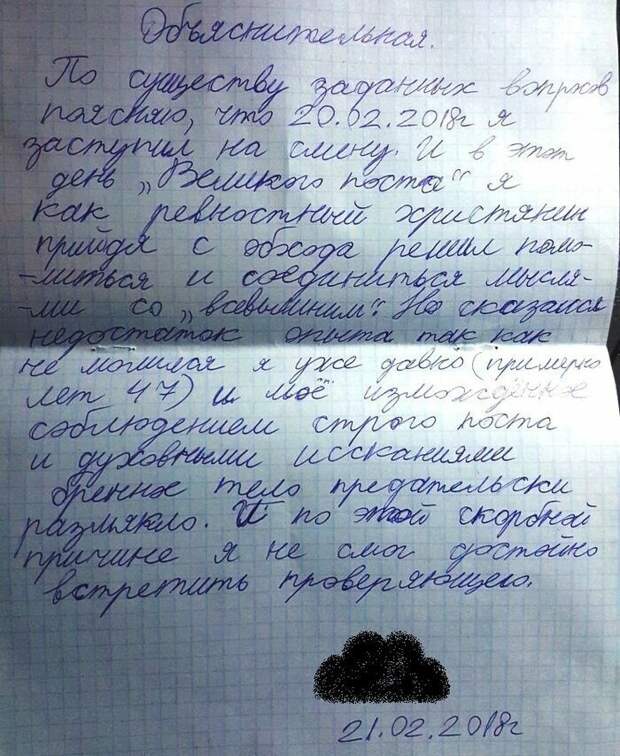 Объяснительная.
По существу заданных вопрсов
поясняю, что 20.02.2018г я
заступил на смену. И в этот
день „Великого поста" я
как ревностный христянин
прийдя с обхода решил помо-
-литься и соединиться мысля-
-ми со „всевышним". Но сказался
недостаток опыта так как
не молился я уже давно (примерно
лет 47) и моё измождённое
соблюдением строго поста
и духовными иссканиями
бренное тело предательски
размякло. И по этой скорбной
причине я не смог достойно
встретить проверяющего.
21.02.2018г